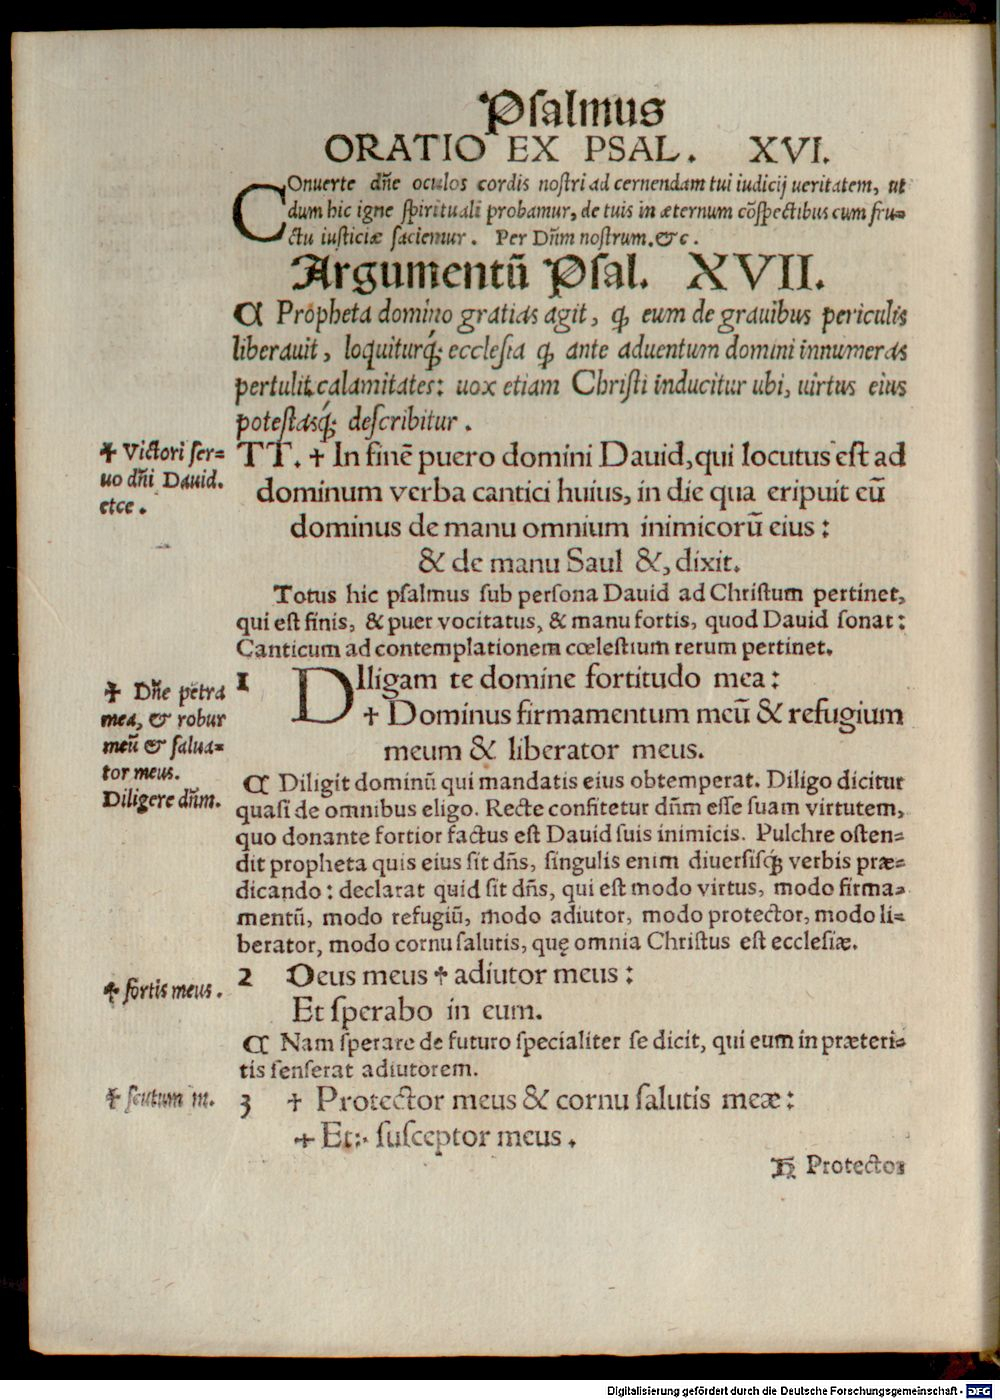 Psalmus
ORATIO EX PSAL. XVI.
COnuerte dñe oculos cordis nostri ad cernendam tui iudicij ueritatem, ut
dum hic igne spirituali probamur, de tuis in æternum cōspectibus cum fru=
ctu iusticiæ saciemur. Per Dñm nostrum.&c.
Argumentū Psal. XVII.
¶ Propheta domino gratias agit, ꝙ eum de grauibus periculis
liberauit, loquiturq́; ecclesia ꝙ ante aduentum domini innumeras
pertulit calamitates: uox etiam Christi inducitur ubi, uirtus eius
potestasq́; describitur.
✝ Victori ser=
uo dñi Dauid.
etce.
TT. ✝ In finē puero domini Dauid, qui locutus est ad
dominum verba cantici huius, in die qua eripuit eū
dominus de manu omnium inimicorū eius:
& de manu Saul &, dixit.
Totus hic psalmus sub persona Dauid ad Christum pertinet,
qui est finis, & puer vocitatus, & manu fortis, quod Dauid sonat:
Canticum ad contemplationem cœlestium rerum pertinet.
✝ Dñe petra
mea, & robur
meū & salua=
tor meus.
Diligere dñm.
1 DIligam te domine fortitudo mea:
✝ Dominus firmamentum meū & refugium
meum & liberator meus.
¶ Diligit dominū qui mandatis eius obtemperat. Diligo dicitur
quasi de omnibus eligo. Recte confitetur dñm esse suam virtutem,
quo donante fortior factus est Dauid suis inimicis. Pulchre osten=
dit propheta quis eius sit dñs, singulis enim diuersisq́; verbis præ=
dicando: declarat quid sit dñs, qui est modo virtus, modo firma=
mentū, modo refugiū, modo adiutor, modo protector, modo li=
berator, modo cornu salutis, quę omnia Christus est ecclesiæ.
✝ fortis meus.
2 Deus meus ✝ adiutor meus:
Et sperabo in eum.
¶ Nam sperare de futuro specialiter se dicit, qui eum in præteri=
tis senserat adiutorem.
✝ scutum m.
3 ✝ Protector meus & cornu salutis meæ:
✝ Et: susceptor meus.
H Protector
Digitalisierung gefördert durch die Deutsche Forschungsgemeinschaft - DFG